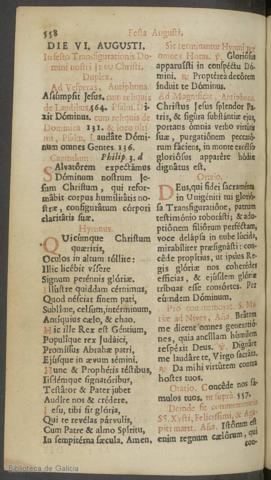 558 Festa Augusti.
DIE VI. AUGUSTI.
In festo Transfigurationis Do-
mini nostri Jesu Christi.
Duplex.
Ad Vesperas, Antiphona.
Assumpsit Jesus, cum reliquis
de Laudibus, 564. Psalm. Di-
xit Dóminus. cum reliquis de
Dominica 131. & loco ulti-
mi, Psalm. Laudáte Dómi-
num omnes Gentes. 136.
Capitulum. Philip. 3. d
Salvatórem expectámus
Dóminum nostrum Je-
sum Christum, qui refor-
mábit corpus humilitátis no-
stræ, configurátum córpori
claritátis suæ.
Hymnus.
Quicúmque Christum
quæritis,
Oculos in altum tóllite:
Illic licébit vísere
Signum perénnis glóriæ.
Illustre quiddam cérnimus,
Quod nésciat finem pati,
Sublíme, celsum, intérminum,
Antíquius cælo, & chao.
Hic ille Rex est Géntium,
Populíque rex Judáici,
Promíssus Abrahæ patri,
Ejúsque in ævum sémini.
Hunc & Prophétis téstibus,
Iisdémque signatóribus,
Testátor & Pater jubet
Audíre nos & crédere.
Jesu, tibi sit glória,
Qui te revélas párvulis,
Cum Patre & almo Spíritu,
In sempitérna sæcula, Amen.
Sic terminantur Hymni per
omnes Horas. ℣. Gloriósus
apparuísti in conspéctu Dó-
mini. ℟. Proptérea decórem
índuit te Dóminus.
Ad Magnificat, Antiphona.
Christus Jesus splendor Pa-
tris, & figúra substántiæ ejus,
portans ómnia verbo virtútis
suæ, purgatiónem peccató-
rum fáciens, in monte excélso
gloriósus apparére hódie
dignátus est.
Oratio.
Deus, qui fídei sacraménta
in Unigéniti tui glorió-
sa Transfiguratióne, patrum
testimónio roborásti; & ado-
ptiónem filiórum perféctam,
voce delápsa in nube lúcida,
mirabíliter præsignásti: con-
céde propítius, ut ipsíus Re-
gis glóriæ nos coherédes
effícias, & ejúsdem glóriæ
tríbuas esse consórtes. Per
eúmdem Dóminum.
Pro commemor. S. Ma-
riæ ad Nives, Aña. Beátam
me dicent omnes generatió-
nes, quia ancíllam húmilem
respéxit Deus. ℣. Dignáre
me laudáre te, Virgo sacráta.
℟. Da mihi virtútem contra
hostes tuos.
Oratio. Concéde nos fá-
mulos tuos, ut supra 557.
Deinde fit commemoratio
SS. Xysti, Felicissimi, & Aga-
piti mart. Aña. Istórum est
enim regnum cælórum, qui
con-
Biblioteca de Galicia